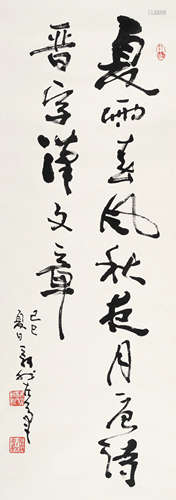 夏雨春风秋夜月唐诗
晋字汉文章
己巳
夏日